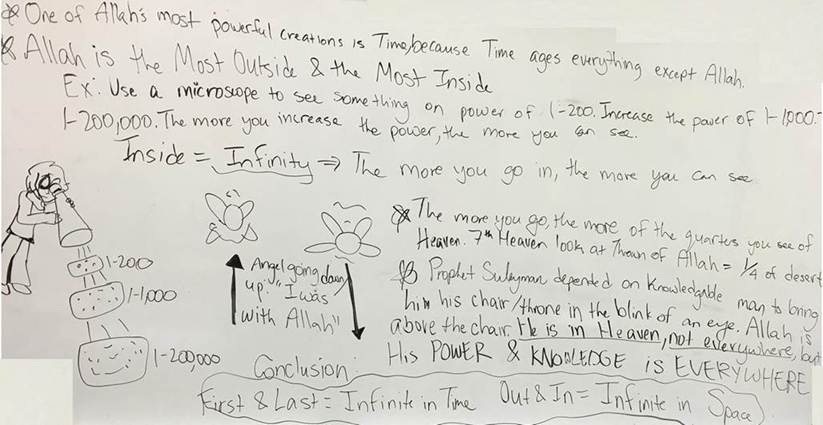 * One of Allah's most powerful creations is Time, because Time ages everything except Allah.
* Allah is the Most Outside & the Most Inside
Ex: Use a microscope to see something on power of 1-200. Increase the power of 1-1,000.-
1-200,000. The more you increase the power, the more you can see.
Inside = Infinity ⇒ The more you go in, the more you can see
1-200
1-1,000
1-200,000
Angel going down/
up: "I was
with Allah"
* The more you go, the more of the quarters you see of
Heaven. 7th Heaven look at Thrown of Allah = 1/4 of desert
* Prophet Sulayman depended on Knowledgable man to bring
him his chair/throne in the blink of an eye. Allah is
above the chair. He is in Heaven, not everywhere, but
His POWER & KNOWLEDGE is EVERYWHERE
Conclusion
First & Last = Infinite in Time Out & In = Infinite in Space